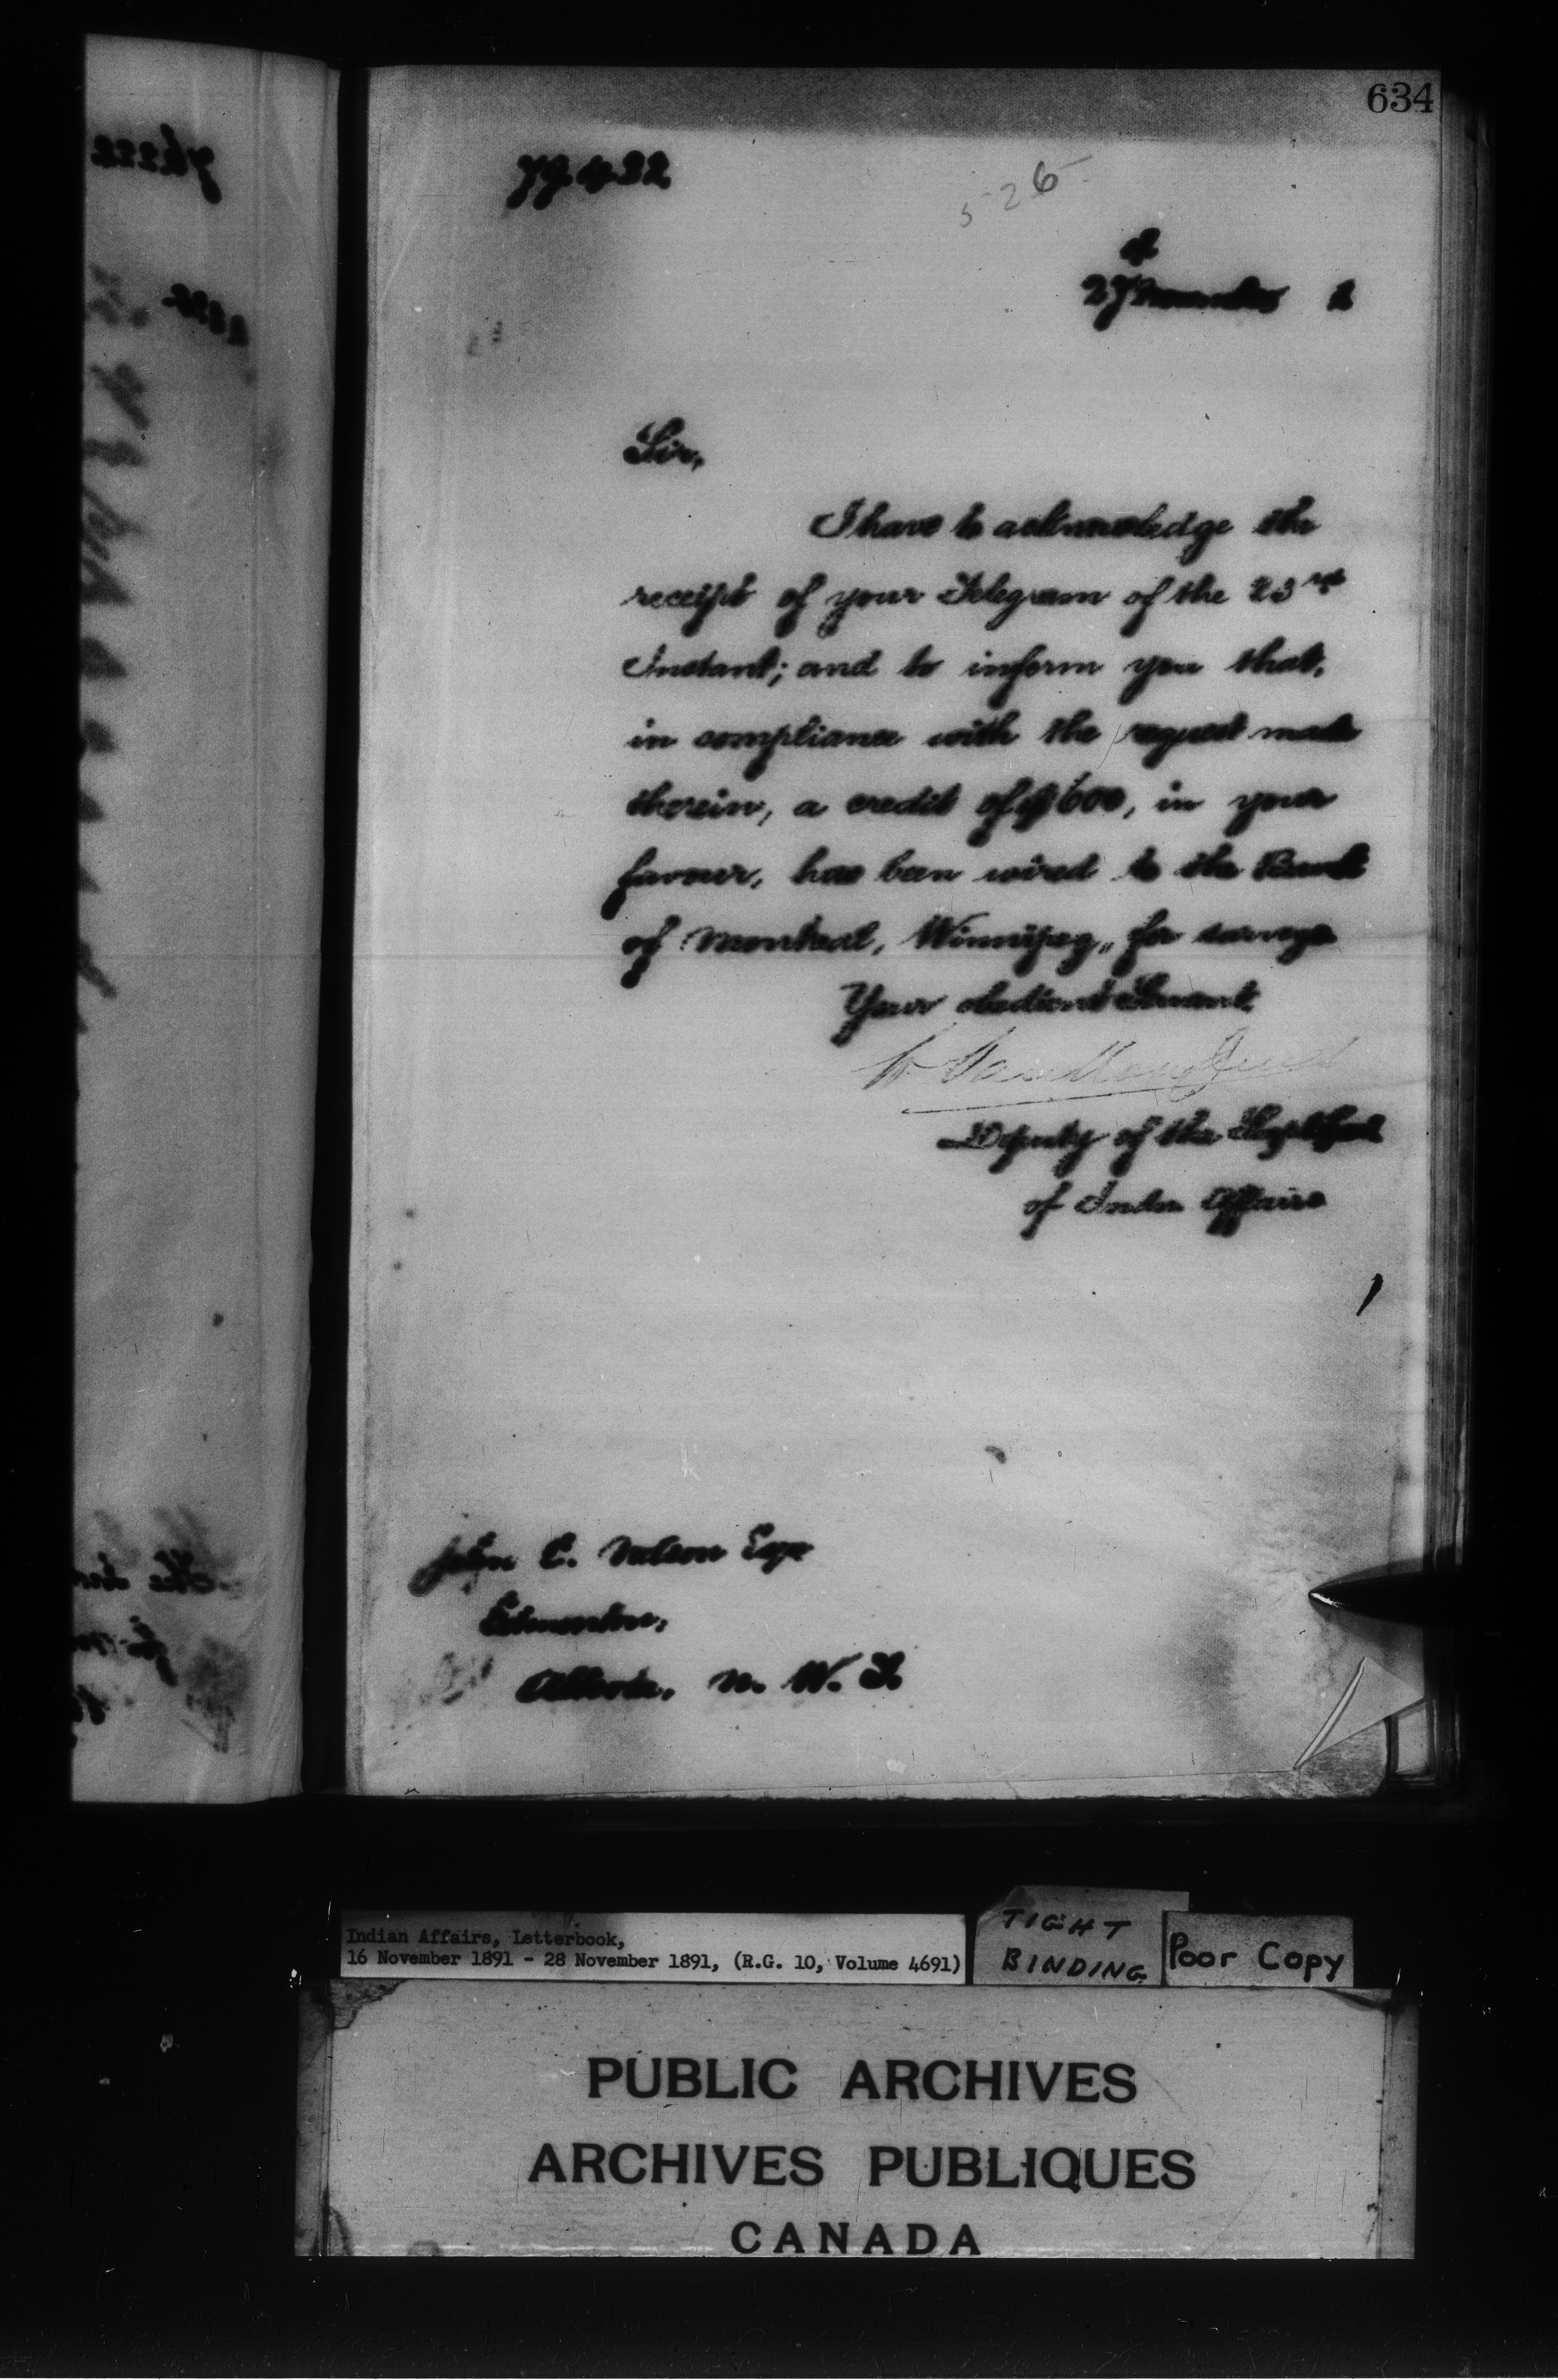 634
79.432
526
27 November 1
Sir,
I have to acknowledge the
receipt of your Telegram of the 23rd
Instant; and to inform you that,
in compliance with the request made
therein, a credit of $600, in your
favour, has been wired to the Bank
of Montreal, Winnipeg, for surveys
Your obedient Servant.
Deputy of the Supt Genl
of Indn Affairs
John C. Nelson Esqr
Edmonton,
Alberta, N. W. T.
Indian Affairs, Letterbook,
16 November 1891 - 28 November 1891, (R.G. 10, Volume 4691)
TIGHT
BINDING
Poor Copy
PUBLIC ARCHIVES
ARCHIVES PUBLIQUES
CANADA